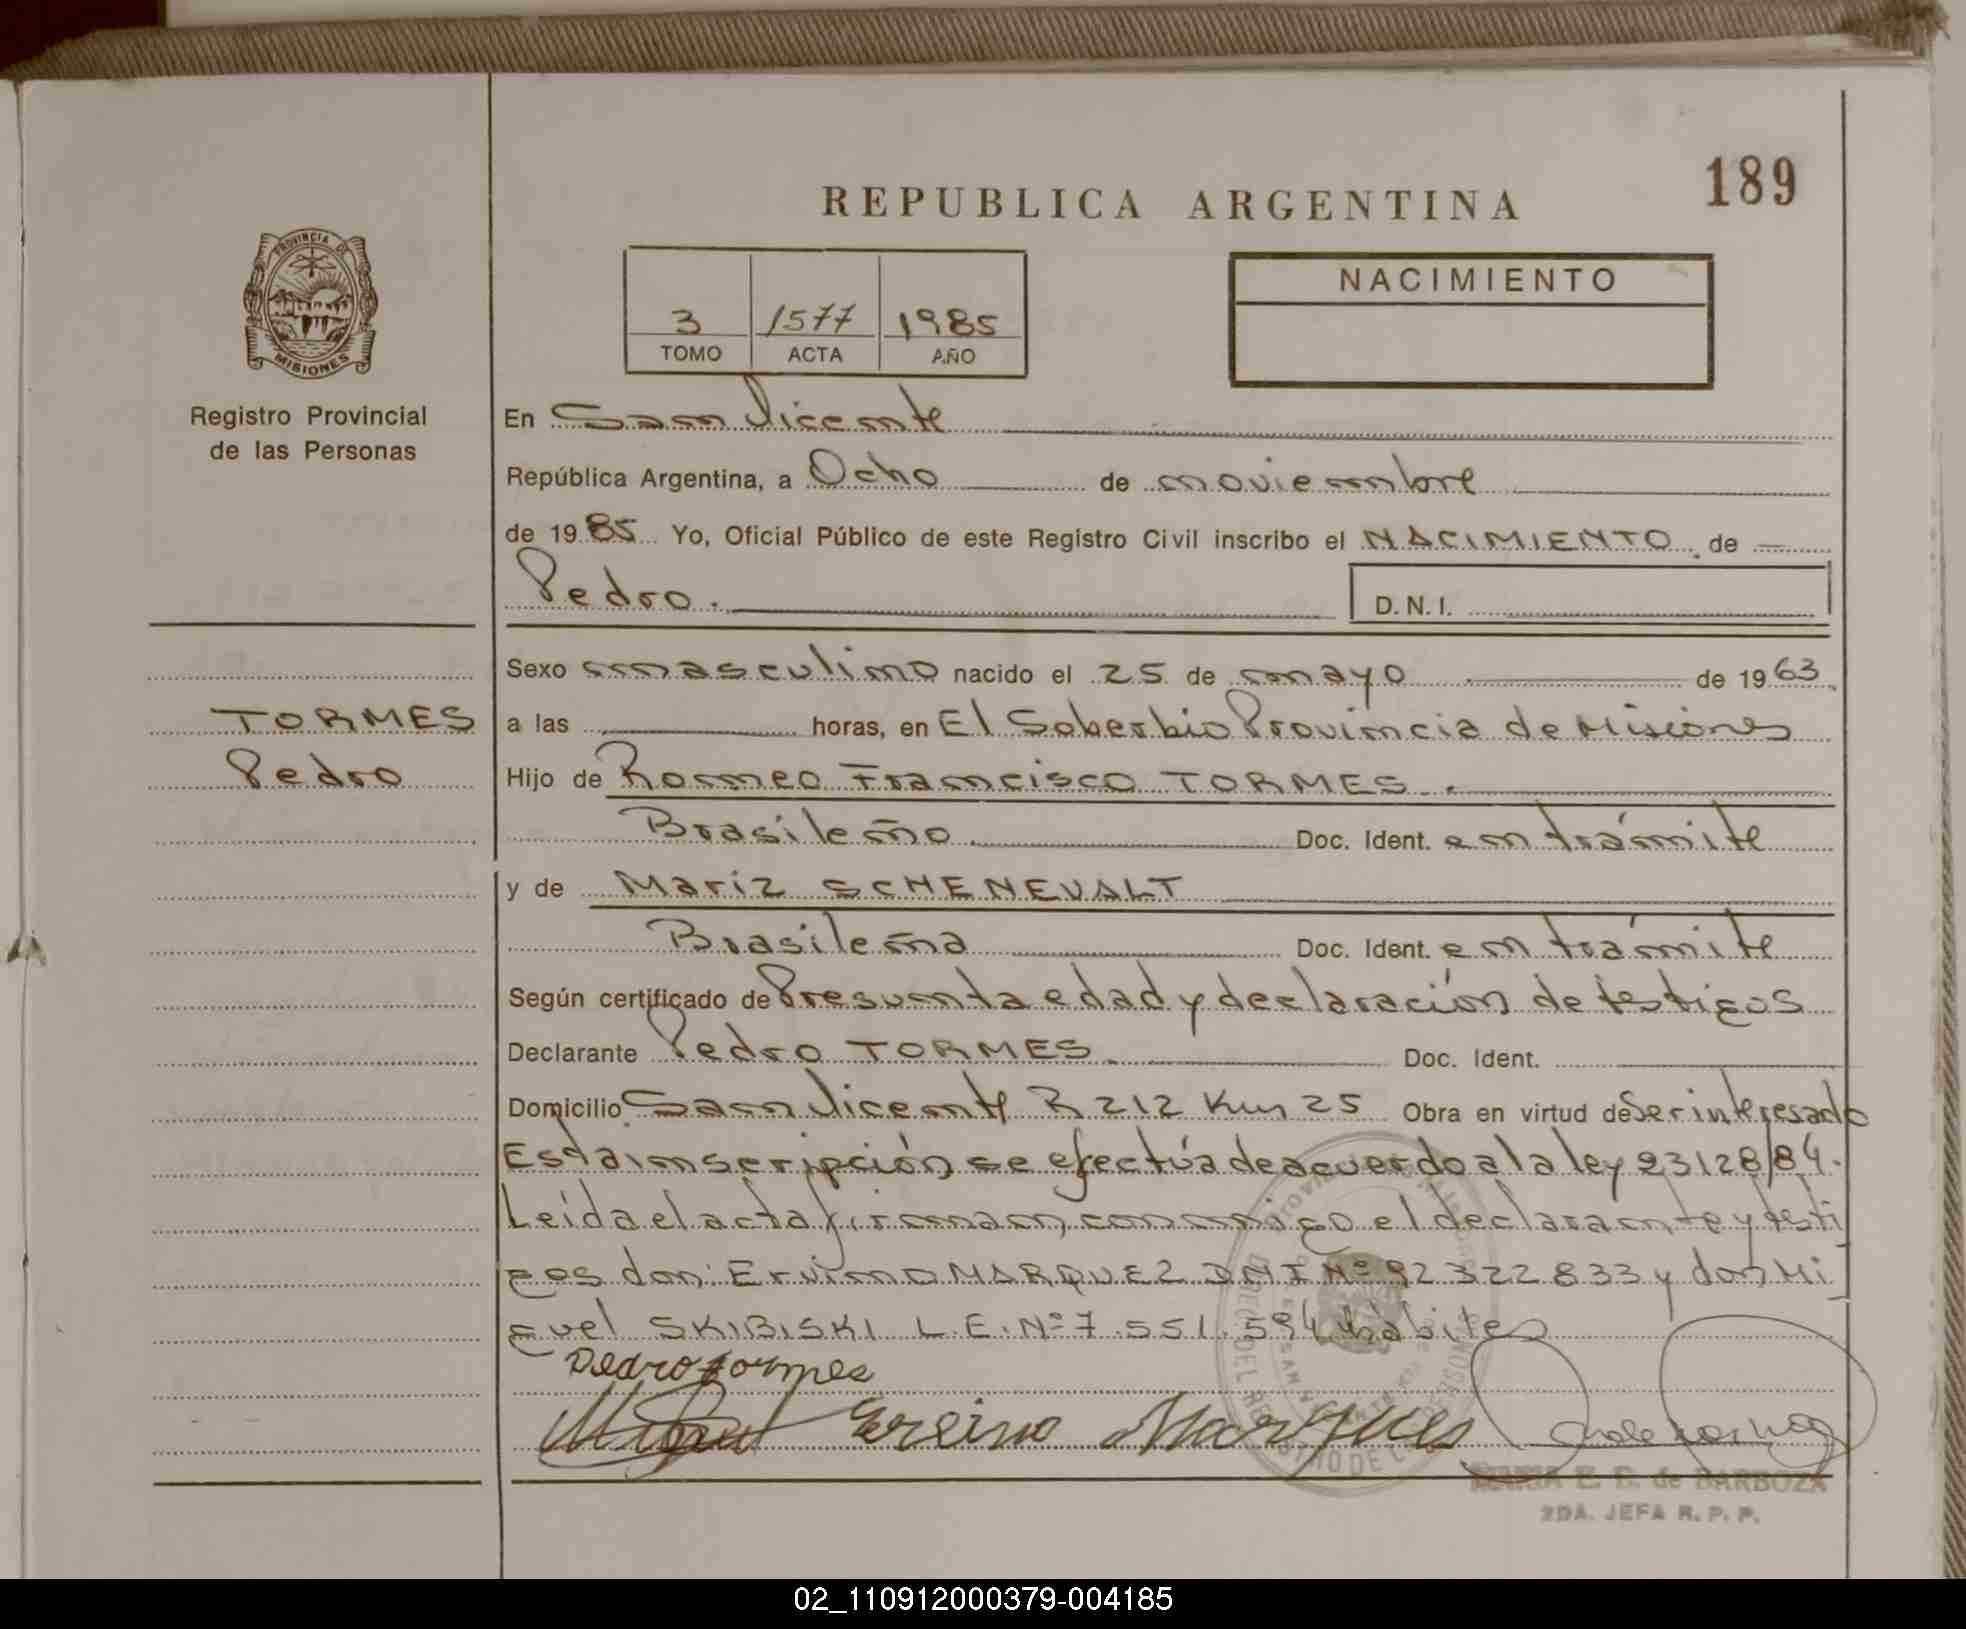 189
REPUBLICA ARGENTINA
PROVINCIA DE
MISIONES
Registro Provincial
de las Personas
3 1577 1985
TOMO ACTA AÑO
NACIMIENTO
En San Vicente
República Argentina, a Ocho de noviembre
de 1985 Yo, Oficial Público de este Registro Civil inscribo el NACIMIENTO de
Pedro.
D.N.I.
TORMES
Pedro
Sexo masculino nacido el 25 de mayo de 1963
a las horas, en El Soberbio Provincia de Misiones
Hijo de Romeo Francisco TORMES.
Brasileño Doc. Ident. en trámite
y de Mariz SCHENEVALT
Brasileña Doc. Ident. en trámite
Según certificado de Presunta edad y declaración de testigos
Declarante Pedro TORMES. Doc. Ident.
Domicilio San Vicente R 212 Km 25 Obra en virtud de Ser interesado
Esta inscripción se efectúa de acuerdo a la ley 23128/84.
Leída el acta firman conmigo el declarante y testi
gos don: Ervino MARQUEZ DNI Nº 92 322 833 y don Mi
guel SKIBISKI L.E. Nº 7.551.594 hábiles
Pedro tormes
Miguel Erein​o Marques
de BARBOZA
2DA. JEFA R. P. P.
02_110912000379-004185